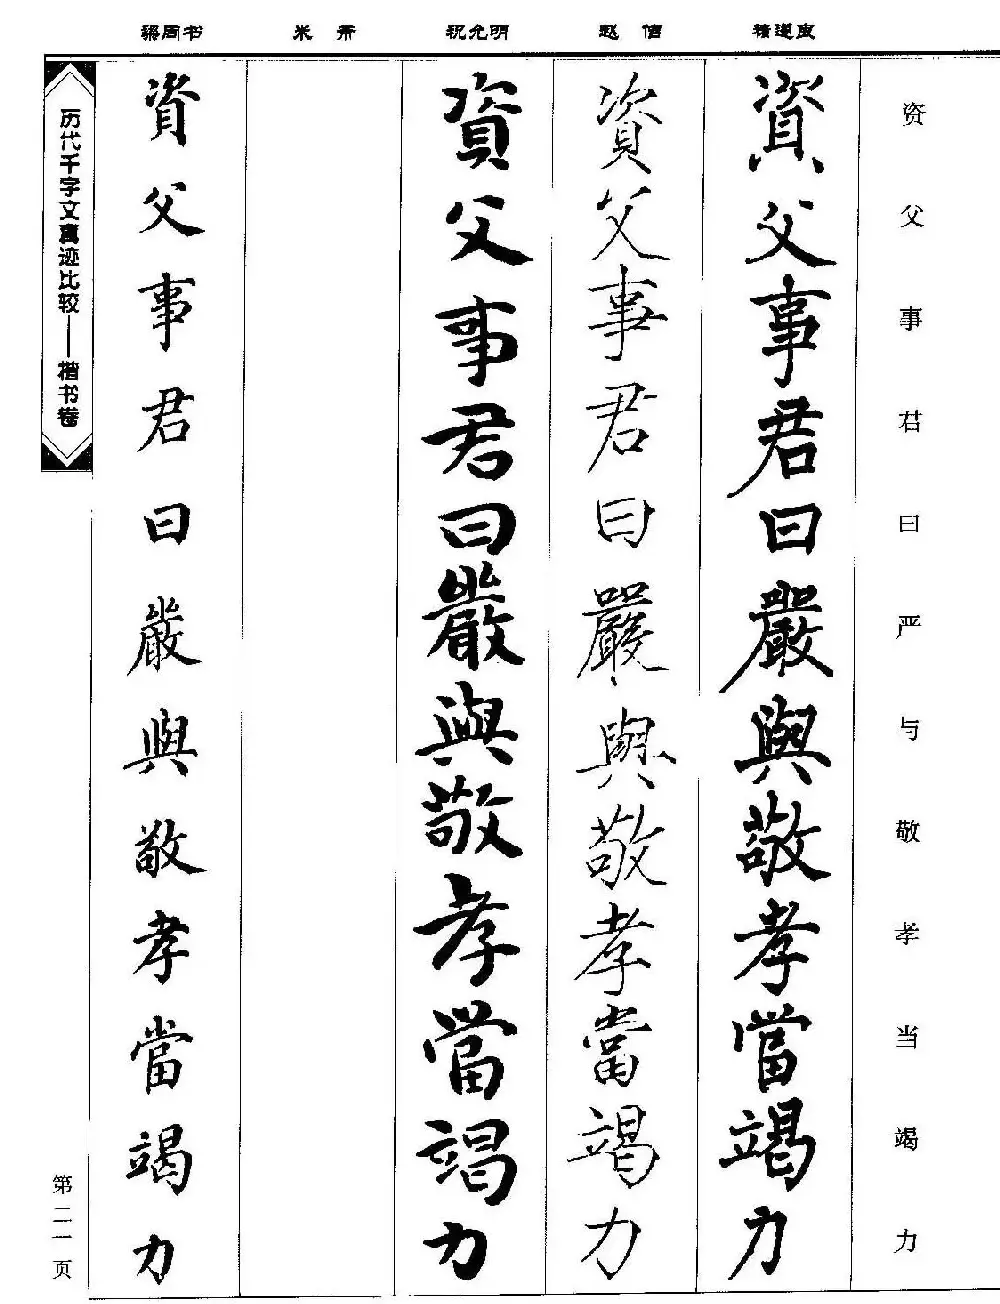 梁同书 米芾 祝允明 赵佶 褚遂良
资父事君曰严与敬孝当竭力
資父事君曰嚴與敬孝當竭力
資父事君曰嚴與敬孝當竭力
資父事君曰嚴與敬孝當竭力
資父事君曰嚴與敬孝當竭力
历代千字文真迹比较——楷书卷
第二一页